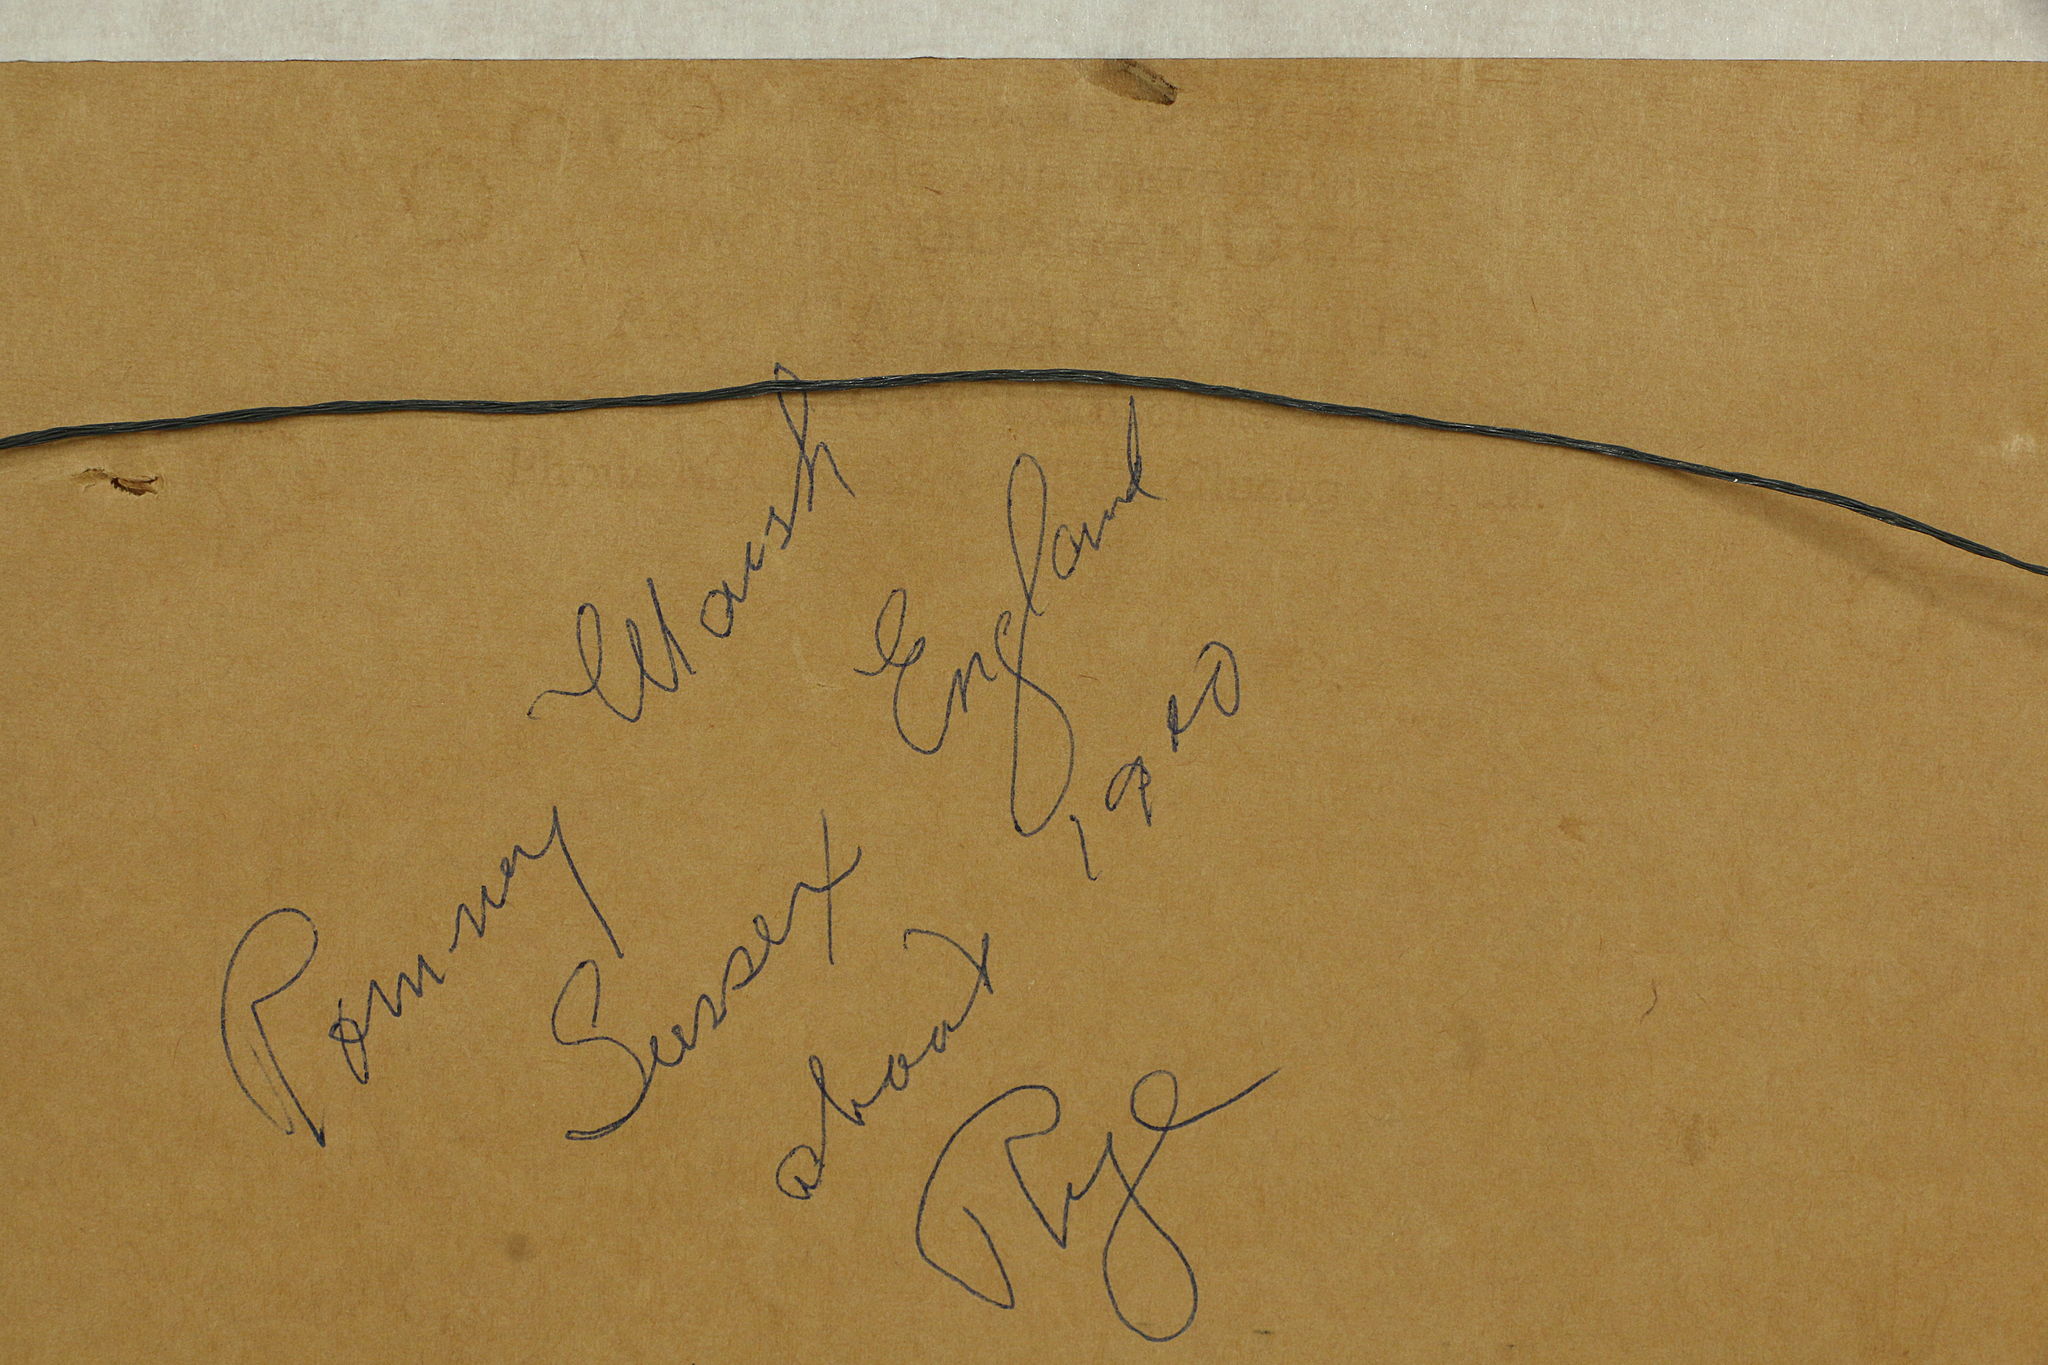 Romney Marsh
Sussex England
about 1900
Rye